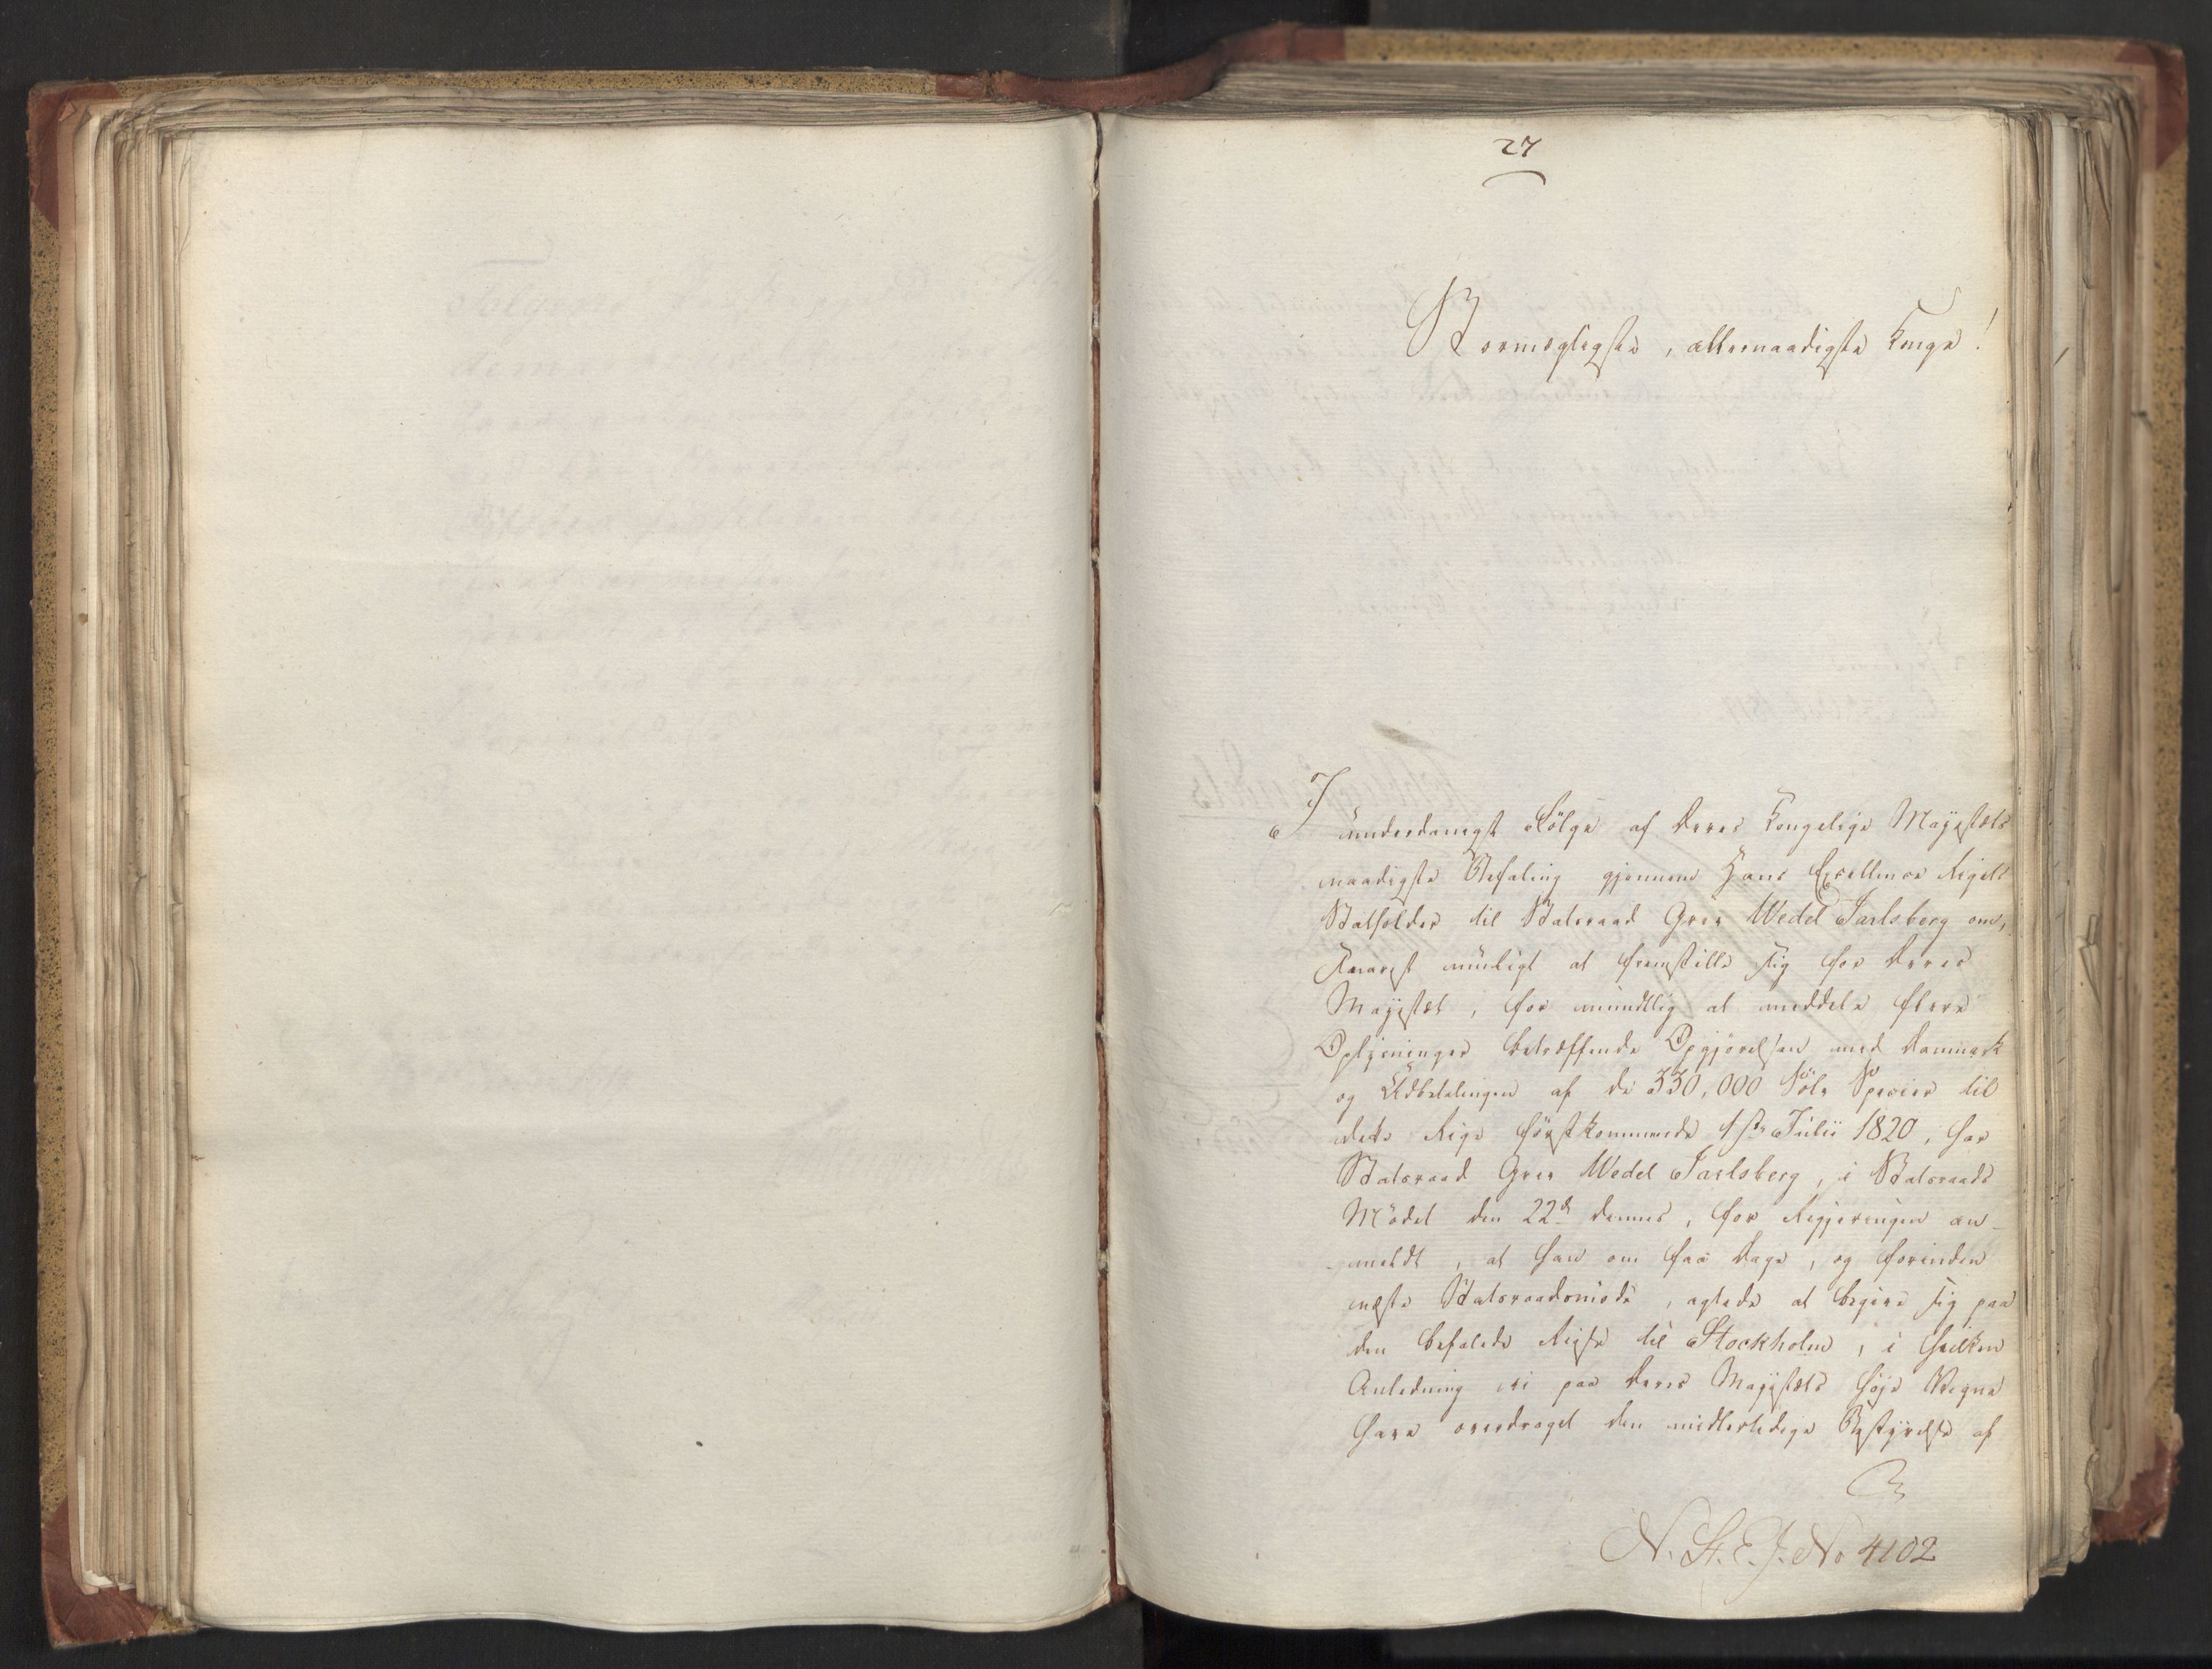 27
Stormægtigste, allernaadigste Konge!
I underdanigst Følge af Deres Kongelige Majestæts
naadigste Befaling gjennem Hans Excellence Rigets
Statholder til Statsraad Grev Wedel Jarlsberg om,
snarest muligt at fremstille sig for Deres
Majestæt, for mundtlig at meddele flere
Oplysninger betræffende Opgjørelsen med Danmark
og Udbetalingen af de 330,000 Sölv Species til
dette Rige förstkommende 1ste Julii 1820, har
Statsraad Grev Wedel Jarlsberg, i Statsraads
Mödet den 22de dennes, for Regjeringen an-
meldt, at han om faa Dage, og forinden
næste Statsraadsmöde, agtede at begive sig paa
den befalede Reise til Stockholm, i hvilken
Anledning vi paa Deres Majestæts höje Vegne
have overdraget den midlertidige Bestyrelse af
N. St. E. J. No 4102